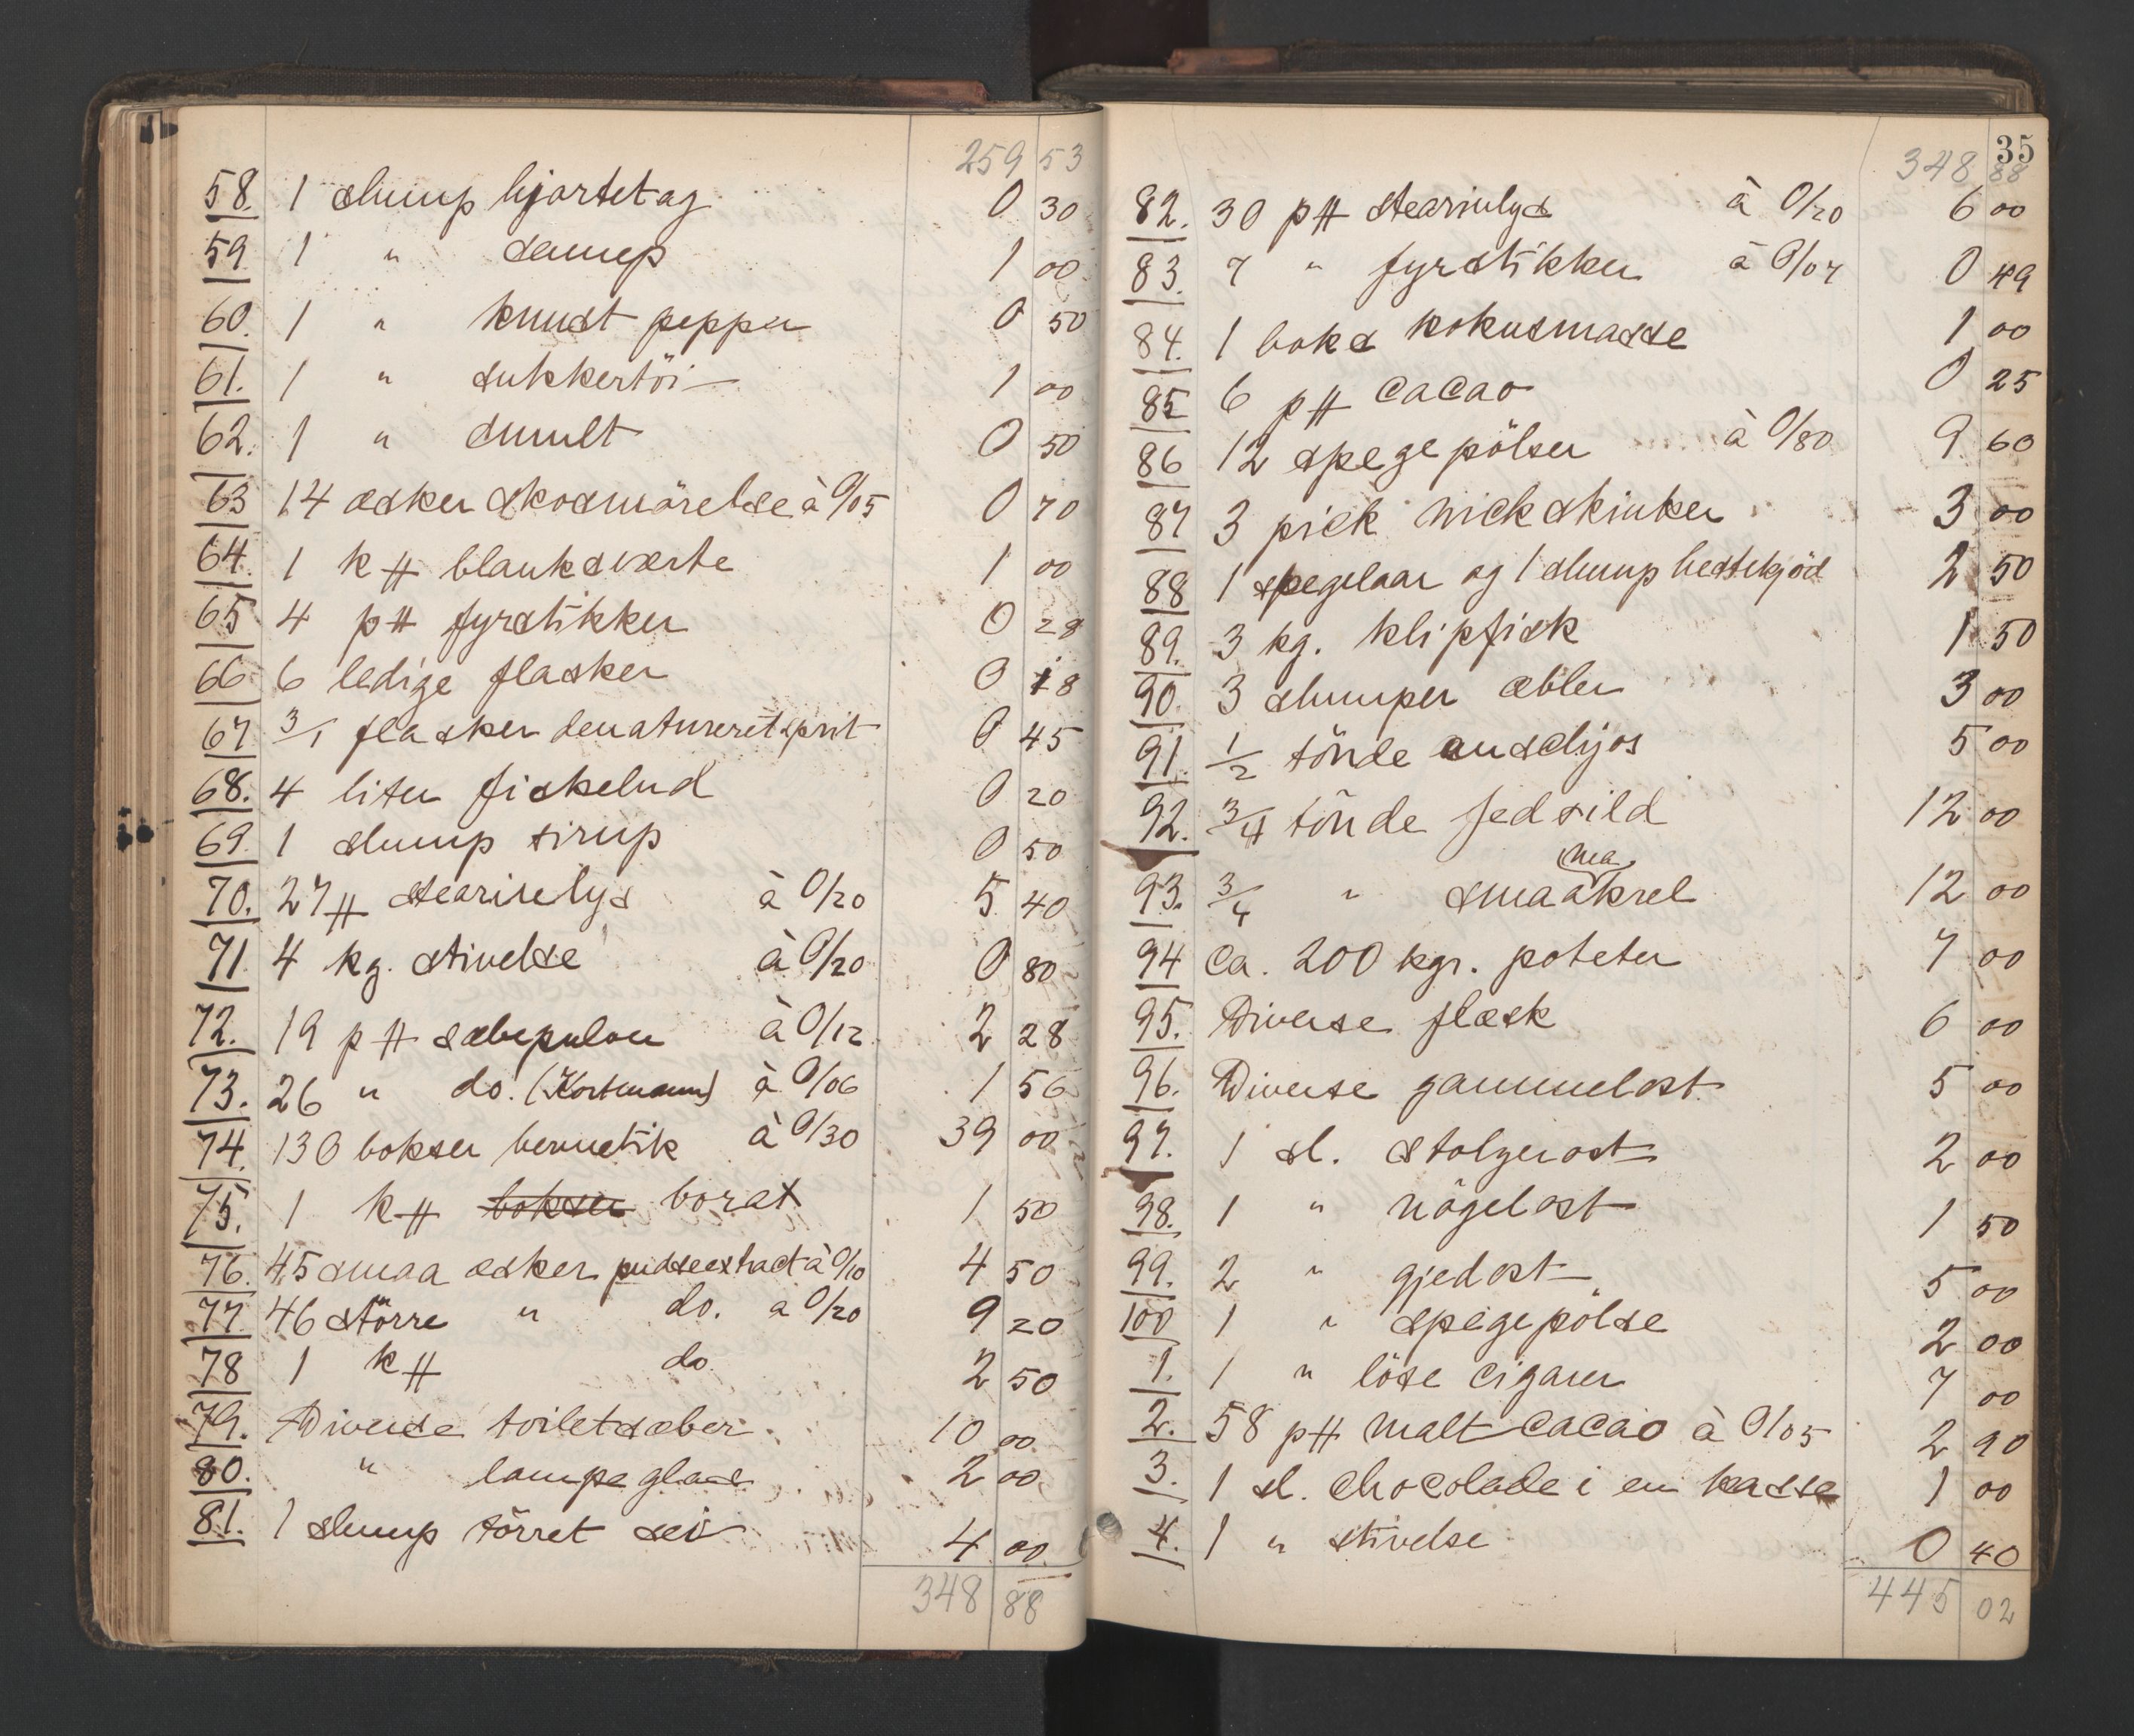 259 53
58. 1 slump hjortetag 0 30
59 1 " sennep 1 00
60. 1 " knust pepper 0 50
61. 1 " sukkertöi 1 00
62. 1 " smult 0 50
63 14 æsker skosmörelse à 0/05 0 70
64. 1 k# blanksværte 1 00
65 4 p# fyrstikker 0 28
66 6 ledige flasker 0 18
67 3/1 flasker denatureret sprit 0 45
68. 4 liter fiskelud 0 20
69. 1 slump sirup 0 50
70. 27 # stearinlys à 0/20 5 40
71. 4 kg. stivelse à 0/20 0 80
72. 19 p# sæbepulver à 0/12 2 28
73. 26 " do. (Kortmann) à 0/06 1 56
74. 130 bokser hermetik à 0/30 39 00
75. 1 k# bokser borax 1 50
76. 45 smaa æsker pudseextract à 0/10 4 50
77. 46 större " do. a 0/20 9 20
78 1 k# do 2 50
79. Diverse toiletsæber 10 00
80. " lampeglas 2 00
81. 1 slump törret sei 4 00
348 88
35
348 88
82. 30 p# stearinlys à 0/20 6 00
83. 7 " fyrstikker à 0/07 0 49
84. 1 boks kokusmasse 1 00
85 6 p# cacao 0 25
86 12 spegepölser à 0/80 9 60
87 3 pick nick skinker 3 00
88 1 spegelaar og 1 slump hestekjöd 2 50
89. 3 kg. klipfisk 1 50
90. 3 slumper æbler 3 00
91. 1/2 tönde anschjos 5 00
92. 3/4 tönde fedsild 12 00
ma
93. 3/4 " smaakrel 12 00
94 Ca. 200 kgr. poteter 7 00
95. Diverse flæsk 6 00
96. Diverse gammelost 5 00
97. 1 sl. stolgerost 2 00
98. 1 " nögelost 1 50
99. 2 " gjedost 5 00
100 1 " spegepölse 2 00
1. 1 " löse cigarer 7 00
2. 58 p# malt cacao à 0/05 2 90
3. 1 sl. chocolade i en kasse 1 00
4. 1 " stivelse 0 40
445 02